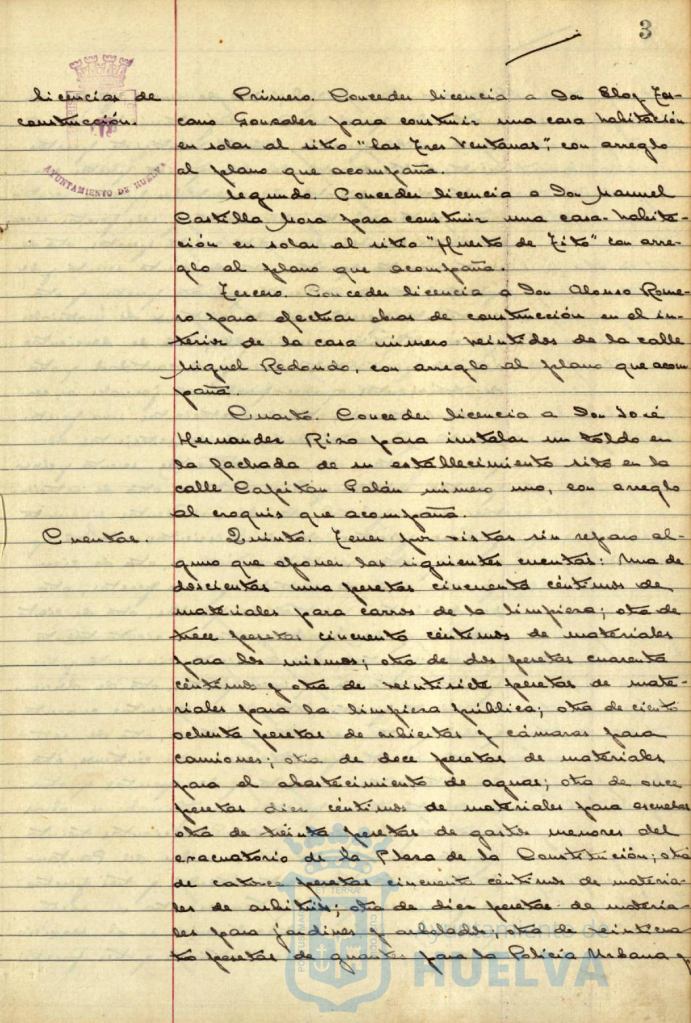 3
licencias de
construcción.
AYUNTAMIENTO DE HUELVA
Primero. Conceder licencia a Don Eloy Tos-
cano Gonzalez para construir una casa habitación
en solar al sitio "las Tres Ventanas", con arreglo
al plano que acompaña.
Segundo. Conceder licencia a Don Manuel
Castilla Mora para construir una casa-habita-
ción en solar al sitio "Huerto de Tito" con arre-
glo al plano que acompaña.
Tercero. Conceder licencia a Don Alonso Rome-
ro para efectuar obras de construcción en el in-
terior de la casa número veintidos de la calle
Miguel Redondo, con arreglo al plano que acom
paña.
Cuarto. Conceder licencia a Don José
Hernandez Rizo para instalar un toldo en
la fachada de su establecimiento sito en la
calle Capitán Galán número uno, con arreglo
al croquis que acompaña.
Cuentas.
Quinto. Tener por vistas sin reparo al-
guno que oponer las siguientes cuentas: Una de
doscientas una pesetas cincuenta céntimos de
materiales para carros de la limpieza; otra de
trece pesetas cincuenta céntimos de materiales
para los mismos; otra de dos pesetas cuarenta
céntimos y otra de veintisiete pesetas de mate-
riales para la limpieza pública; otra de ciento
ochenta pesetas de cubiertas y cámaras para
camiones; otra de doce pesetas de materiales
para el abastecimiento de aguas; otra de once
pesetas diez céntimos de materiales para escuelas
otra de treinta pesetas de gastos menores del
evacuatorio de la Plaza de la Constitución; otra
de catorce pesetas cincuenta céntimos de materia-
les de arbitrios; otra de diez pesetas de materia-
les para jardines y arbolados; otra de veinticua-
tro pesetas de guantes para la Policía Urbana y
HUELVA